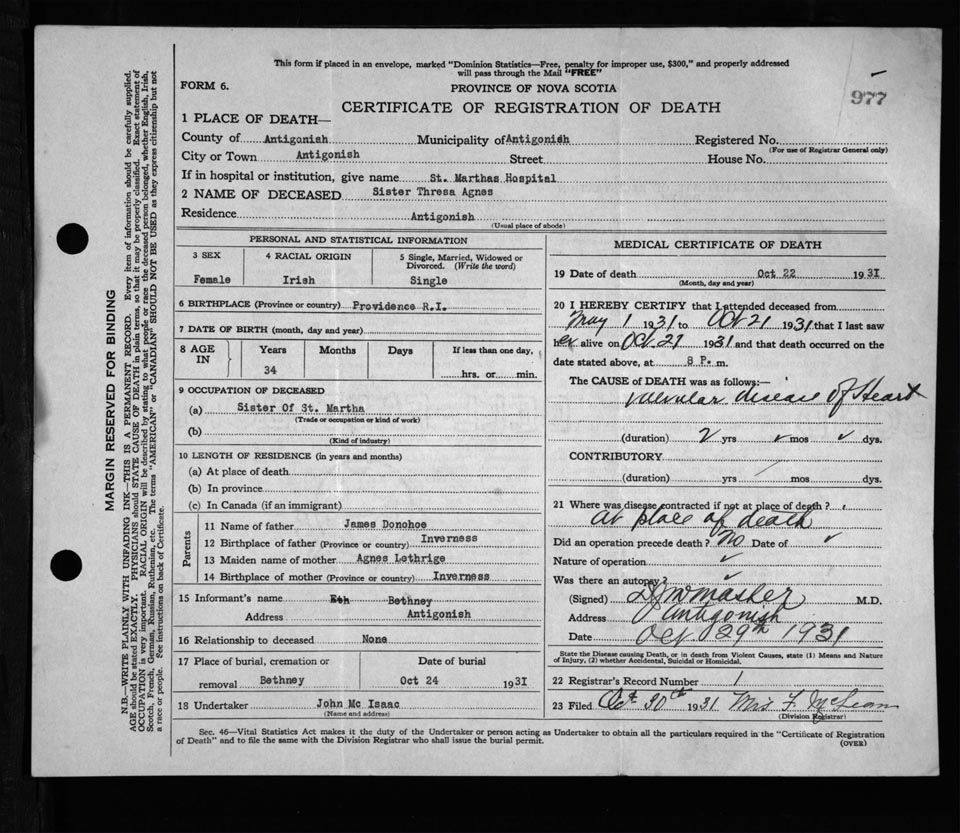 This form if placed in an envelope, marked "Dominion Statistics—Free, penalty for improper use, $300," and properly addressed
will pass through the Mail "FREE"
FORM 6.
PROVINCE OF NOVA SCOTIA
977
CERTIFICATE OF REGISTRATION OF DEATH
1 PLACE OF DEATH—
County of Antigonish Municipality of Antigonish Registered No.
(For use of Registrar General only)
City or Town Antigonish Street House No.
If in hospital or institution, give name St. Marthas Hospital
2 NAME OF DECEASED Sister Thresa Agnes
Residence Antigonish
(Usual place of abode)
PERSONAL AND STATISTICAL INFORMATION
3 SEX 4 RACIAL ORIGIN 5 Single, Married, Widowed or
Divorced. (Write the word)
Female Irish Single
6 BIRTHPLACE (Province or country) Providence R.I.
7 DATE OF BIRTH (month, day and year)
8 AGE IN Years Months Days If less than one day,
34 hrs. or min.
9 OCCUPATION OF DECEASED
(a) Sister Of St. Martha
(Trade or occupation or kind of work)
(b)
(Kind of industry)
10 LENGTH OF RESIDENCE (in years and months)
(a) At place of death
(b) In province
(c) In Canada (if an immigrant)
Parents
11 Name of father James Donohoe
12 Birthplace of father (Province or country) Inverness
13 Maiden name of mother Agnes Lethrige
14 Birthplace of mother (Province or country) Inverness
15 Informant's name Bethney
Address Antigonish
16 Relationship to deceased None
17 Place of burial, cremation or Date of burial
removal Bethney Oct 24 1931
18 Undertaker John Mc Isaac
(Name and address)
MEDICAL CERTIFICATE OF DEATH
19 Date of death Oct 22 1931
(Month, day and year)
20 I HEREBY CERTIFY that I attended deceased from
May 1 1931 to Oct 21 1931 that I last saw
her alive on Oct. 21 1931 and that death occurred on the
date stated above, at 8 P. m.
The CAUSE of DEATH was as follows:—
valvular disease of Heart
(duration) 2 yrs ✓ mos ✓ dys.
CONTRIBUTORY
(duration) yrs mos dys.
21 Where was disease contracted if not at place of death?
at place of death
Did an operation precede death? No Date of ✓
Nature of operation ✓
Was there an autopsy? ✓
(Signed) M.D.
Address Antigonish
Date Oct 29th 1931
State the Disease causing Death, or in death from Violent Causes, state (1) Means and Nature
of Injury, (2) whether Accidental, Suicidal or Homicidal.
22 Registrar's Record Number 1
23 Filed Oct 30th 1931 Mrs F. McLean
(Division Registrar)
Sec. 46—Vital Statistics Act makes it the duty of the Undertaker or person acting as Undertaker to obtain all the particulars required in the "Certificate of Registration
of Death" and to file the same with the Division Registrar who shall issue the burial permit.
(OVER)
MARGIN RESERVED FOR BINDING
N.B.—WRITE PLAINLY WITH UNFADING INK—THIS IS A PERMANENT RECORD. Every item of information should be carefully supplied.
AGE should be stated EXACTLY. PHYSICIANS should STATE CAUSE OF DEATH in plain terms, so that it may be properly classified. Exact statement of
OCCUPATION is very important. RACIAL ORIGIN will be described by stating to what people or race the deceased person belonged, whether English, Irish,
Scotch, French, German, Russian, Ruthenian, etc. The terms "AMERICAN" or "CANADIAN" SHOULD NOT BE USED as they express citizenship but not
a race or people. See instructions on back of Certificate.